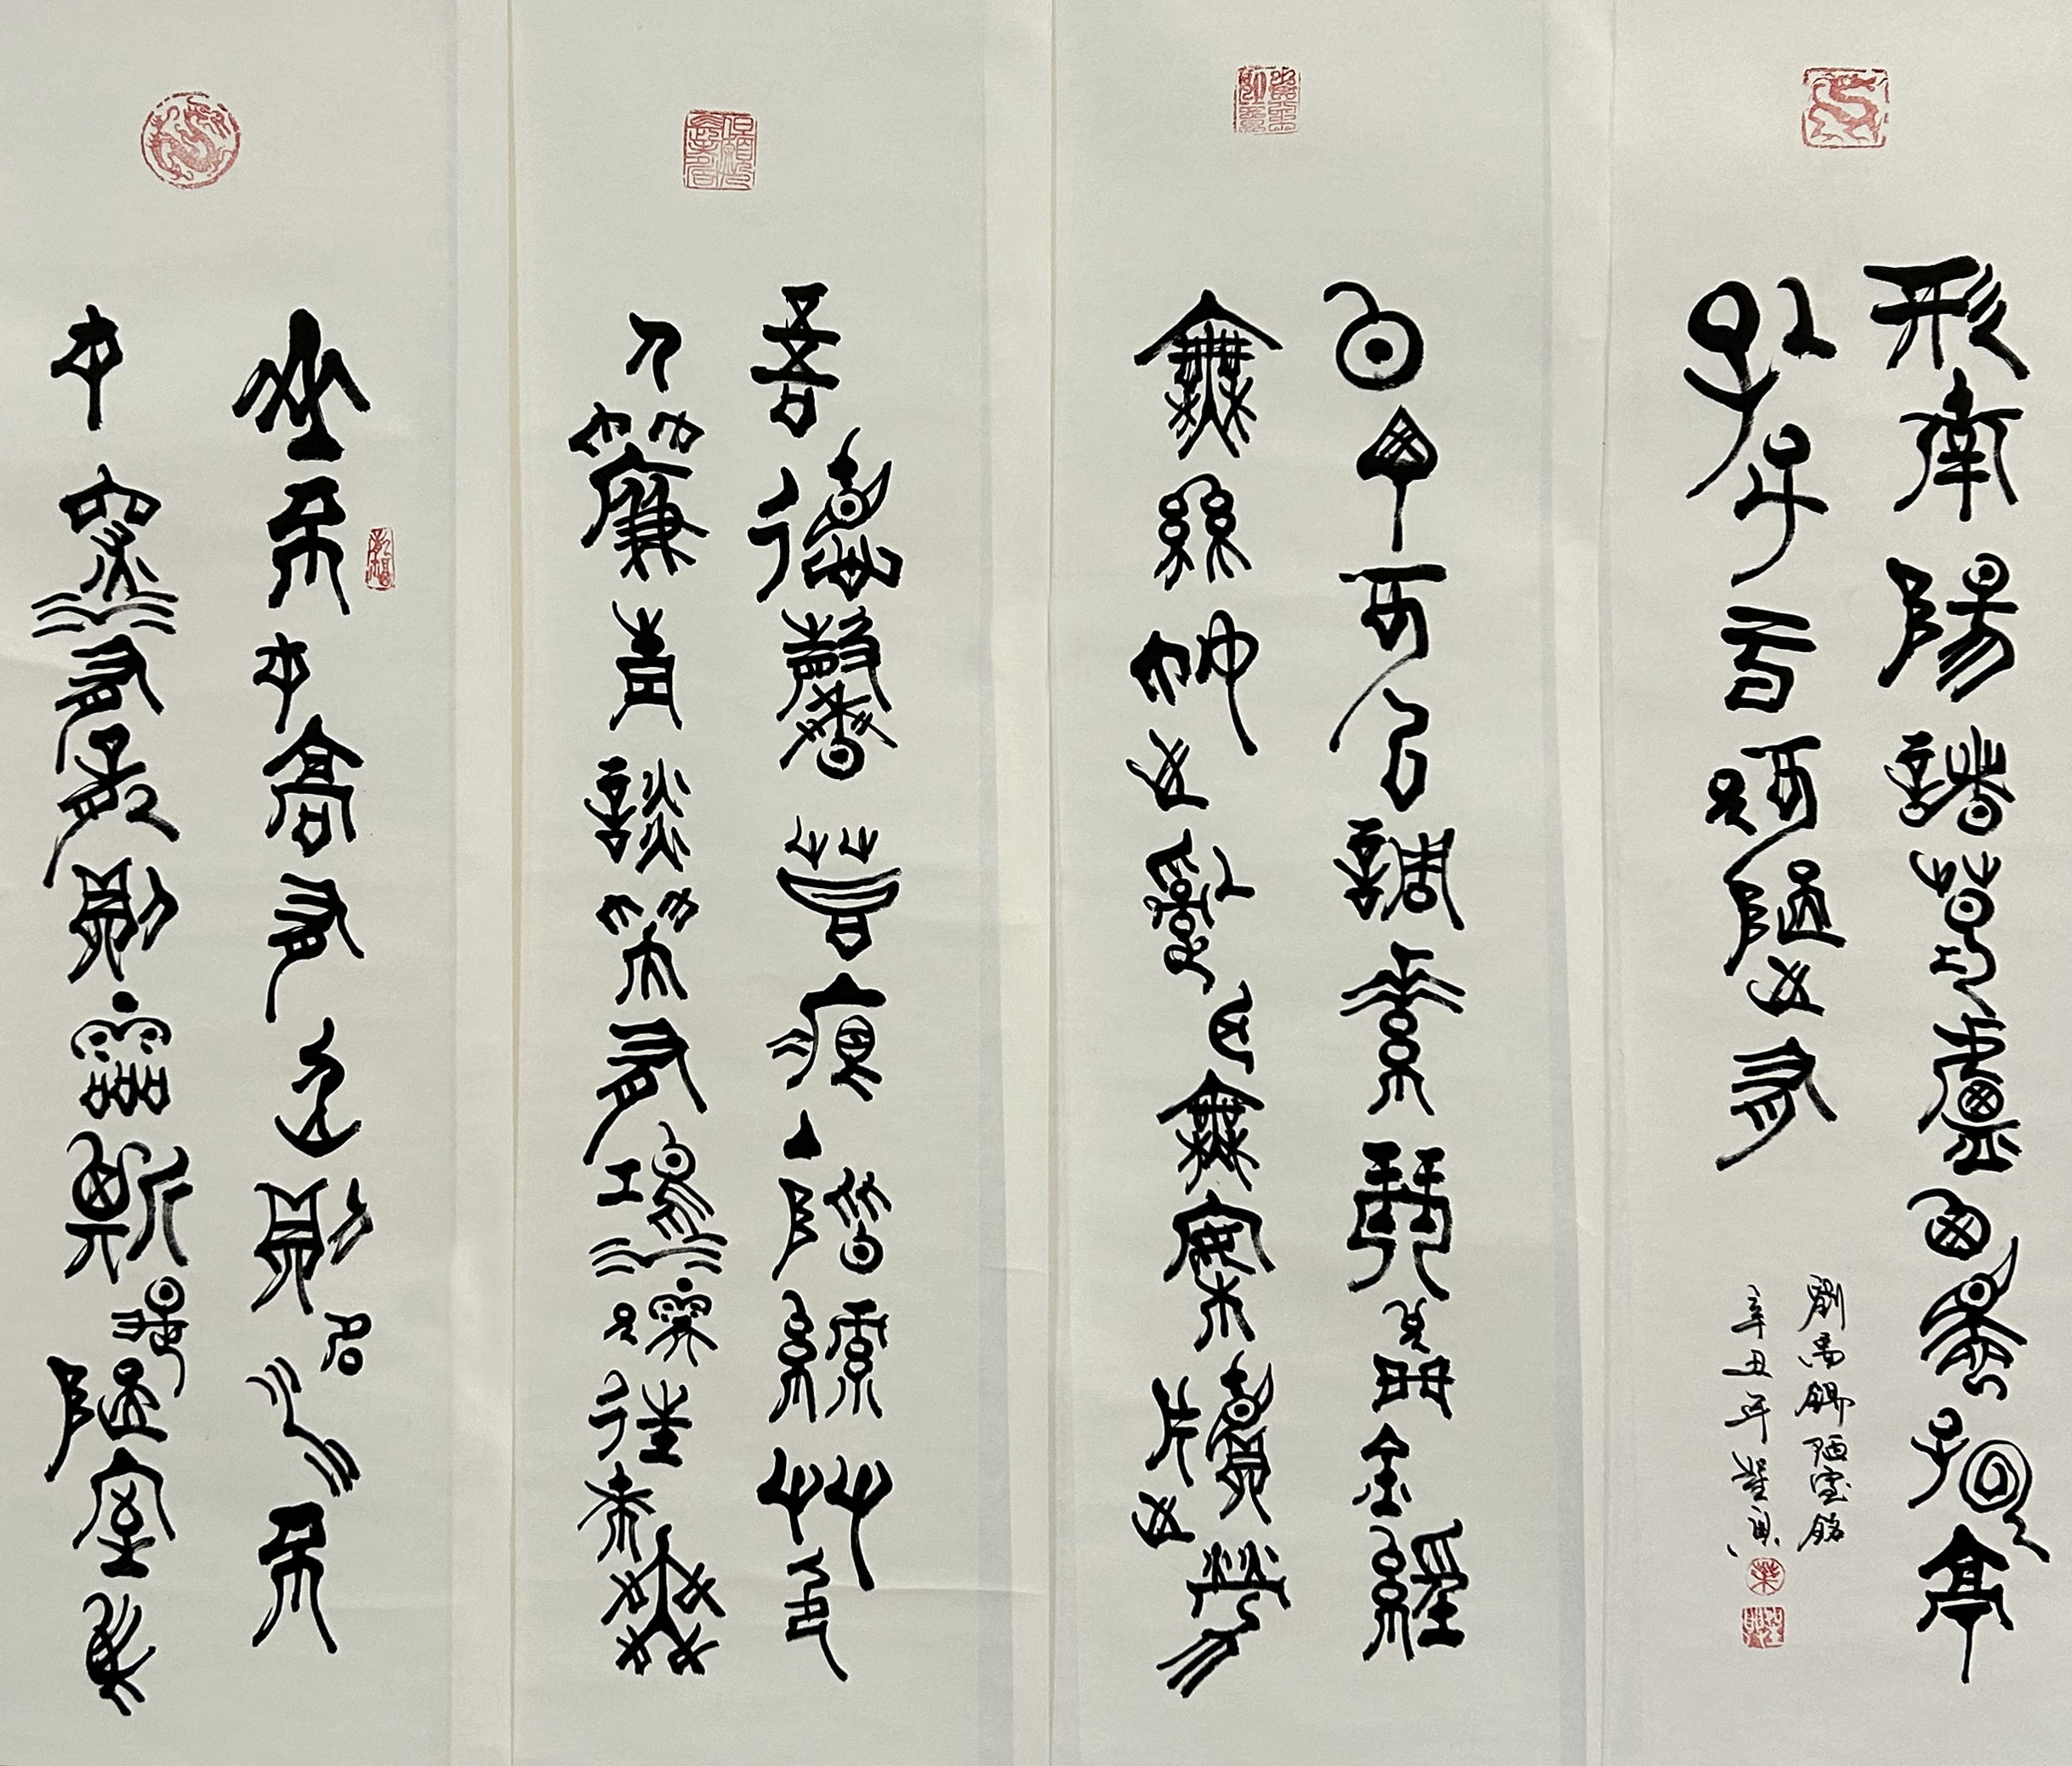 山不在高有仙則名水不
在深有龍則靈斯是陋室惟
吾德馨苔痕上階綠艸色
入簾青談笑有鴻儒往來無
白丁可以調素琴閱金經
無絲竹之亂耳無案牘之勞
形南陽諸葛廬西蜀子雲亭
孔子云何陋之有
劉禹錫陋室銘
辛丑年